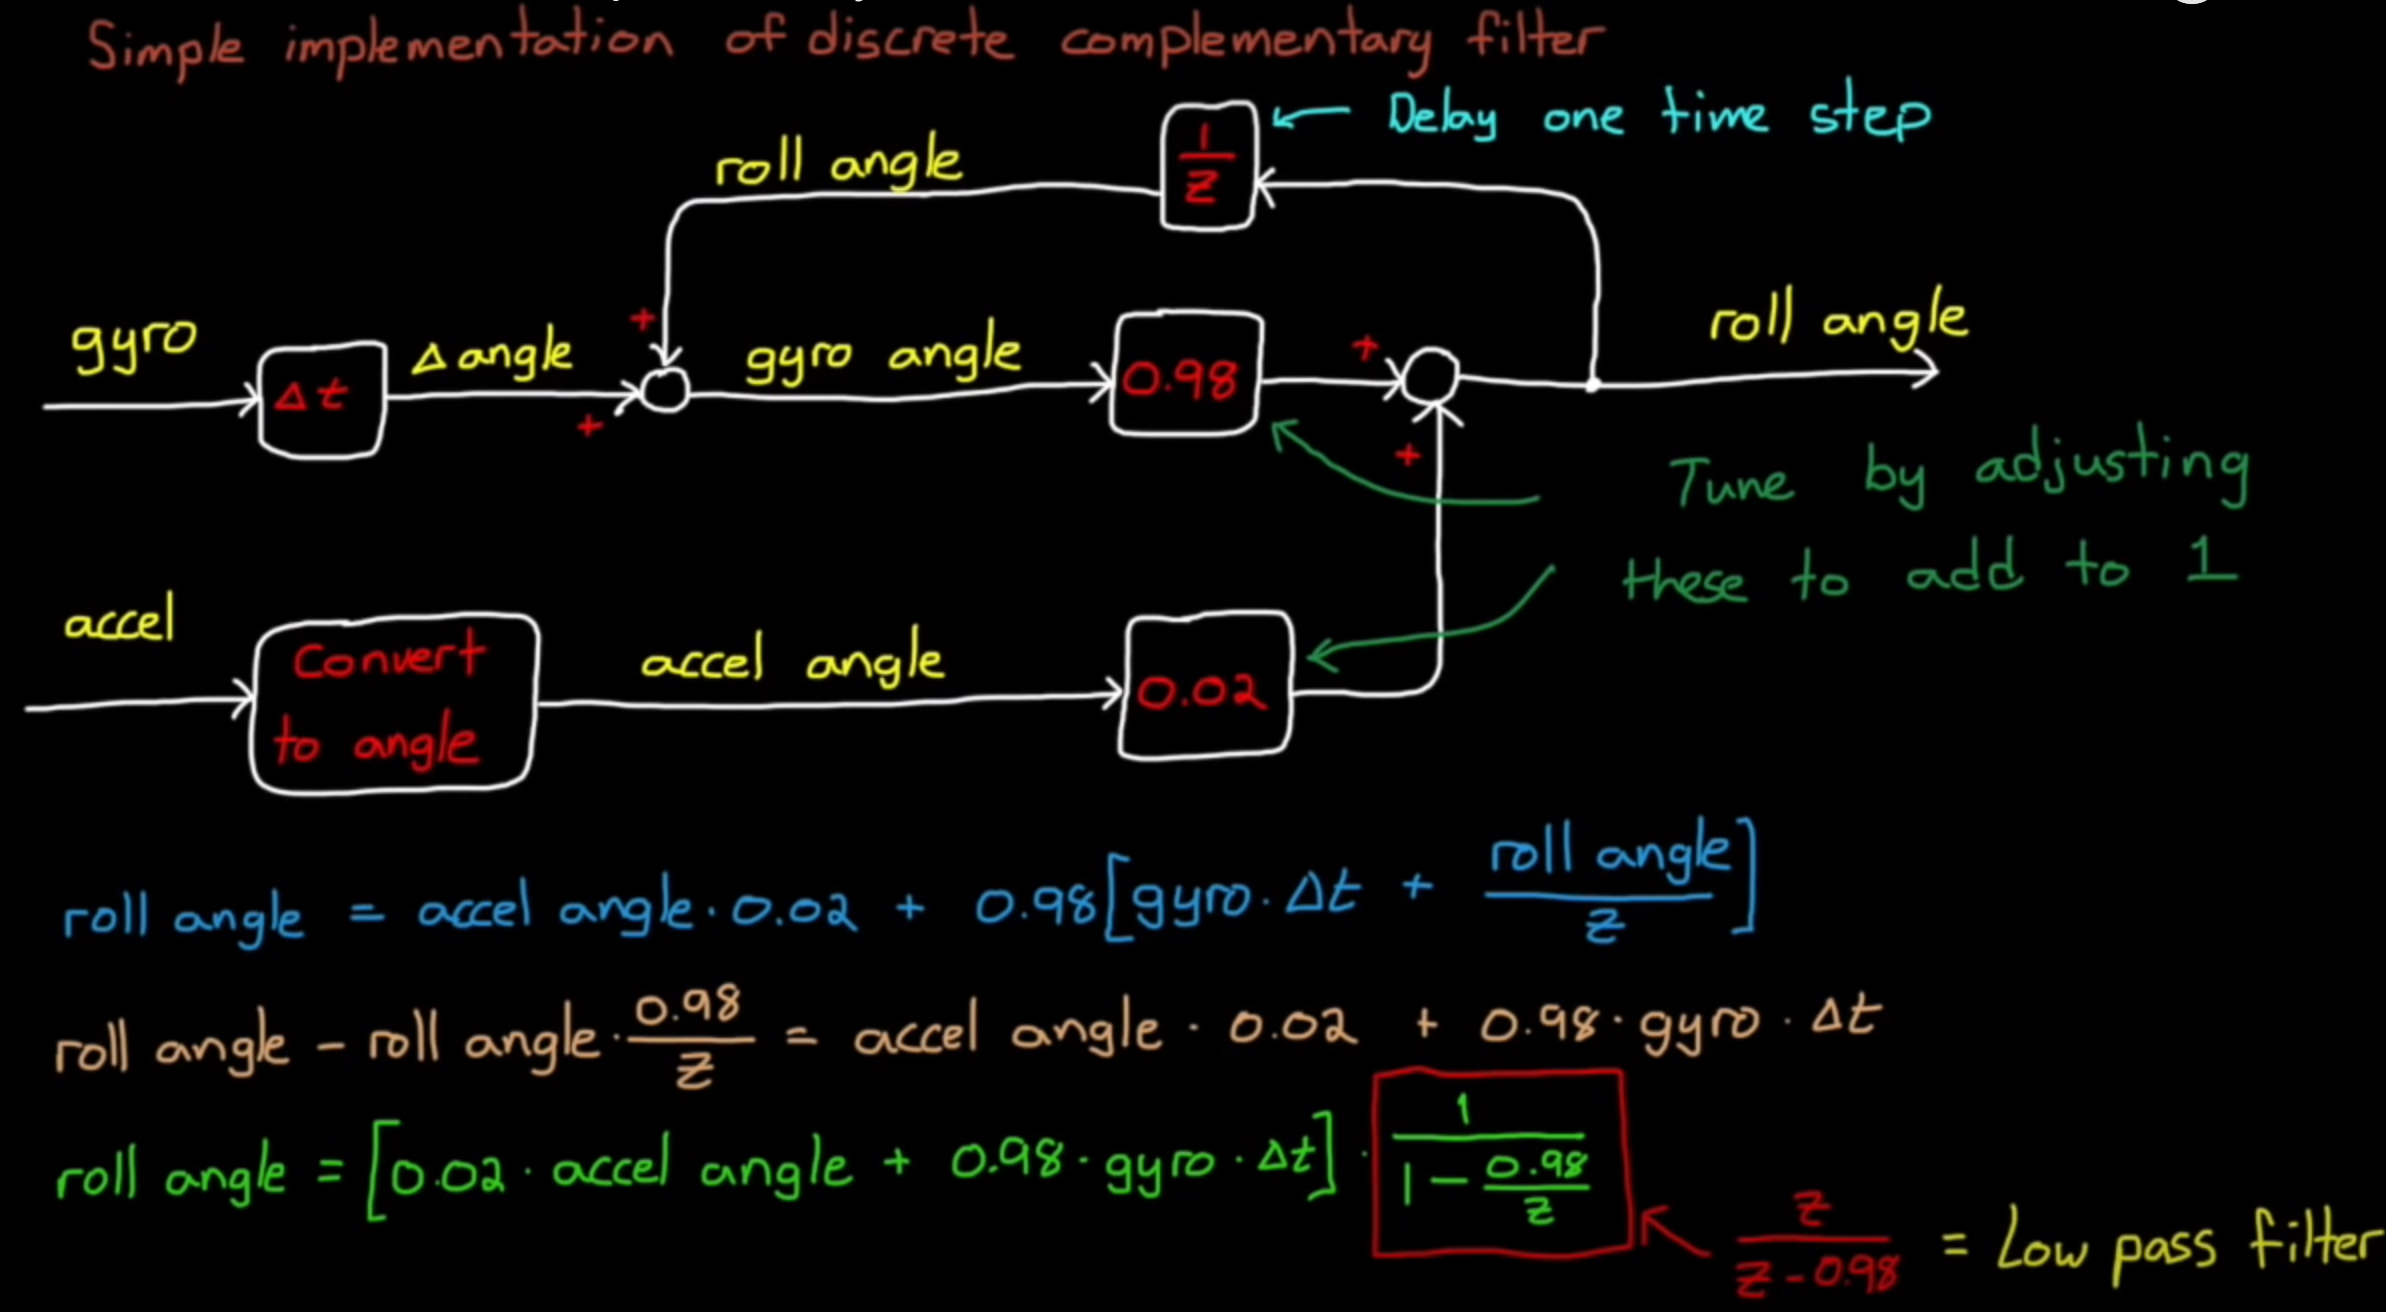 Simple implementation of discrete complementary filter
1/z
← Delay one time step
roll angle
gyro
Δt
Δ angle
+
+
gyro angle
0.98
+
+
roll angle
Tune by adjusting
these to add to 1
accel
Convert
to angle
accel angle
0.02
roll angle = accel angle · 0.02 + 0.98[gyro · Δt + roll angle/z]
roll angle - roll angle · 0.98/z = accel angle · 0.02 + 0.98 · gyro · Δt
roll angle = [0.02 · accel angle + 0.98 · gyro · Δt] · 1/(1 - 0.98/z)
z/(z - 0.98) = Low pass filter